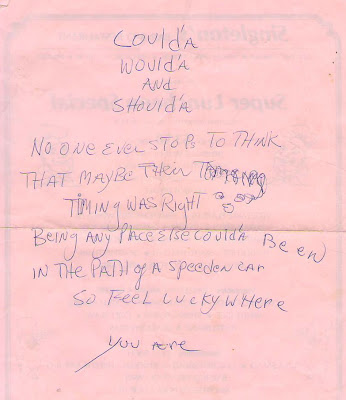 COULD'A
WOULD'A
AND
SHOULD'A
NO ONE EVER STOPS TO THINK
THAT MAYBE THEIR
TIMING WAS RIGHT
BEING ANY PLACE ELSE COULD'A BEEN
IN THE PATH OF A SPEEDEN CAR
SO FEEL LUCKY WHERE
YOU ARE